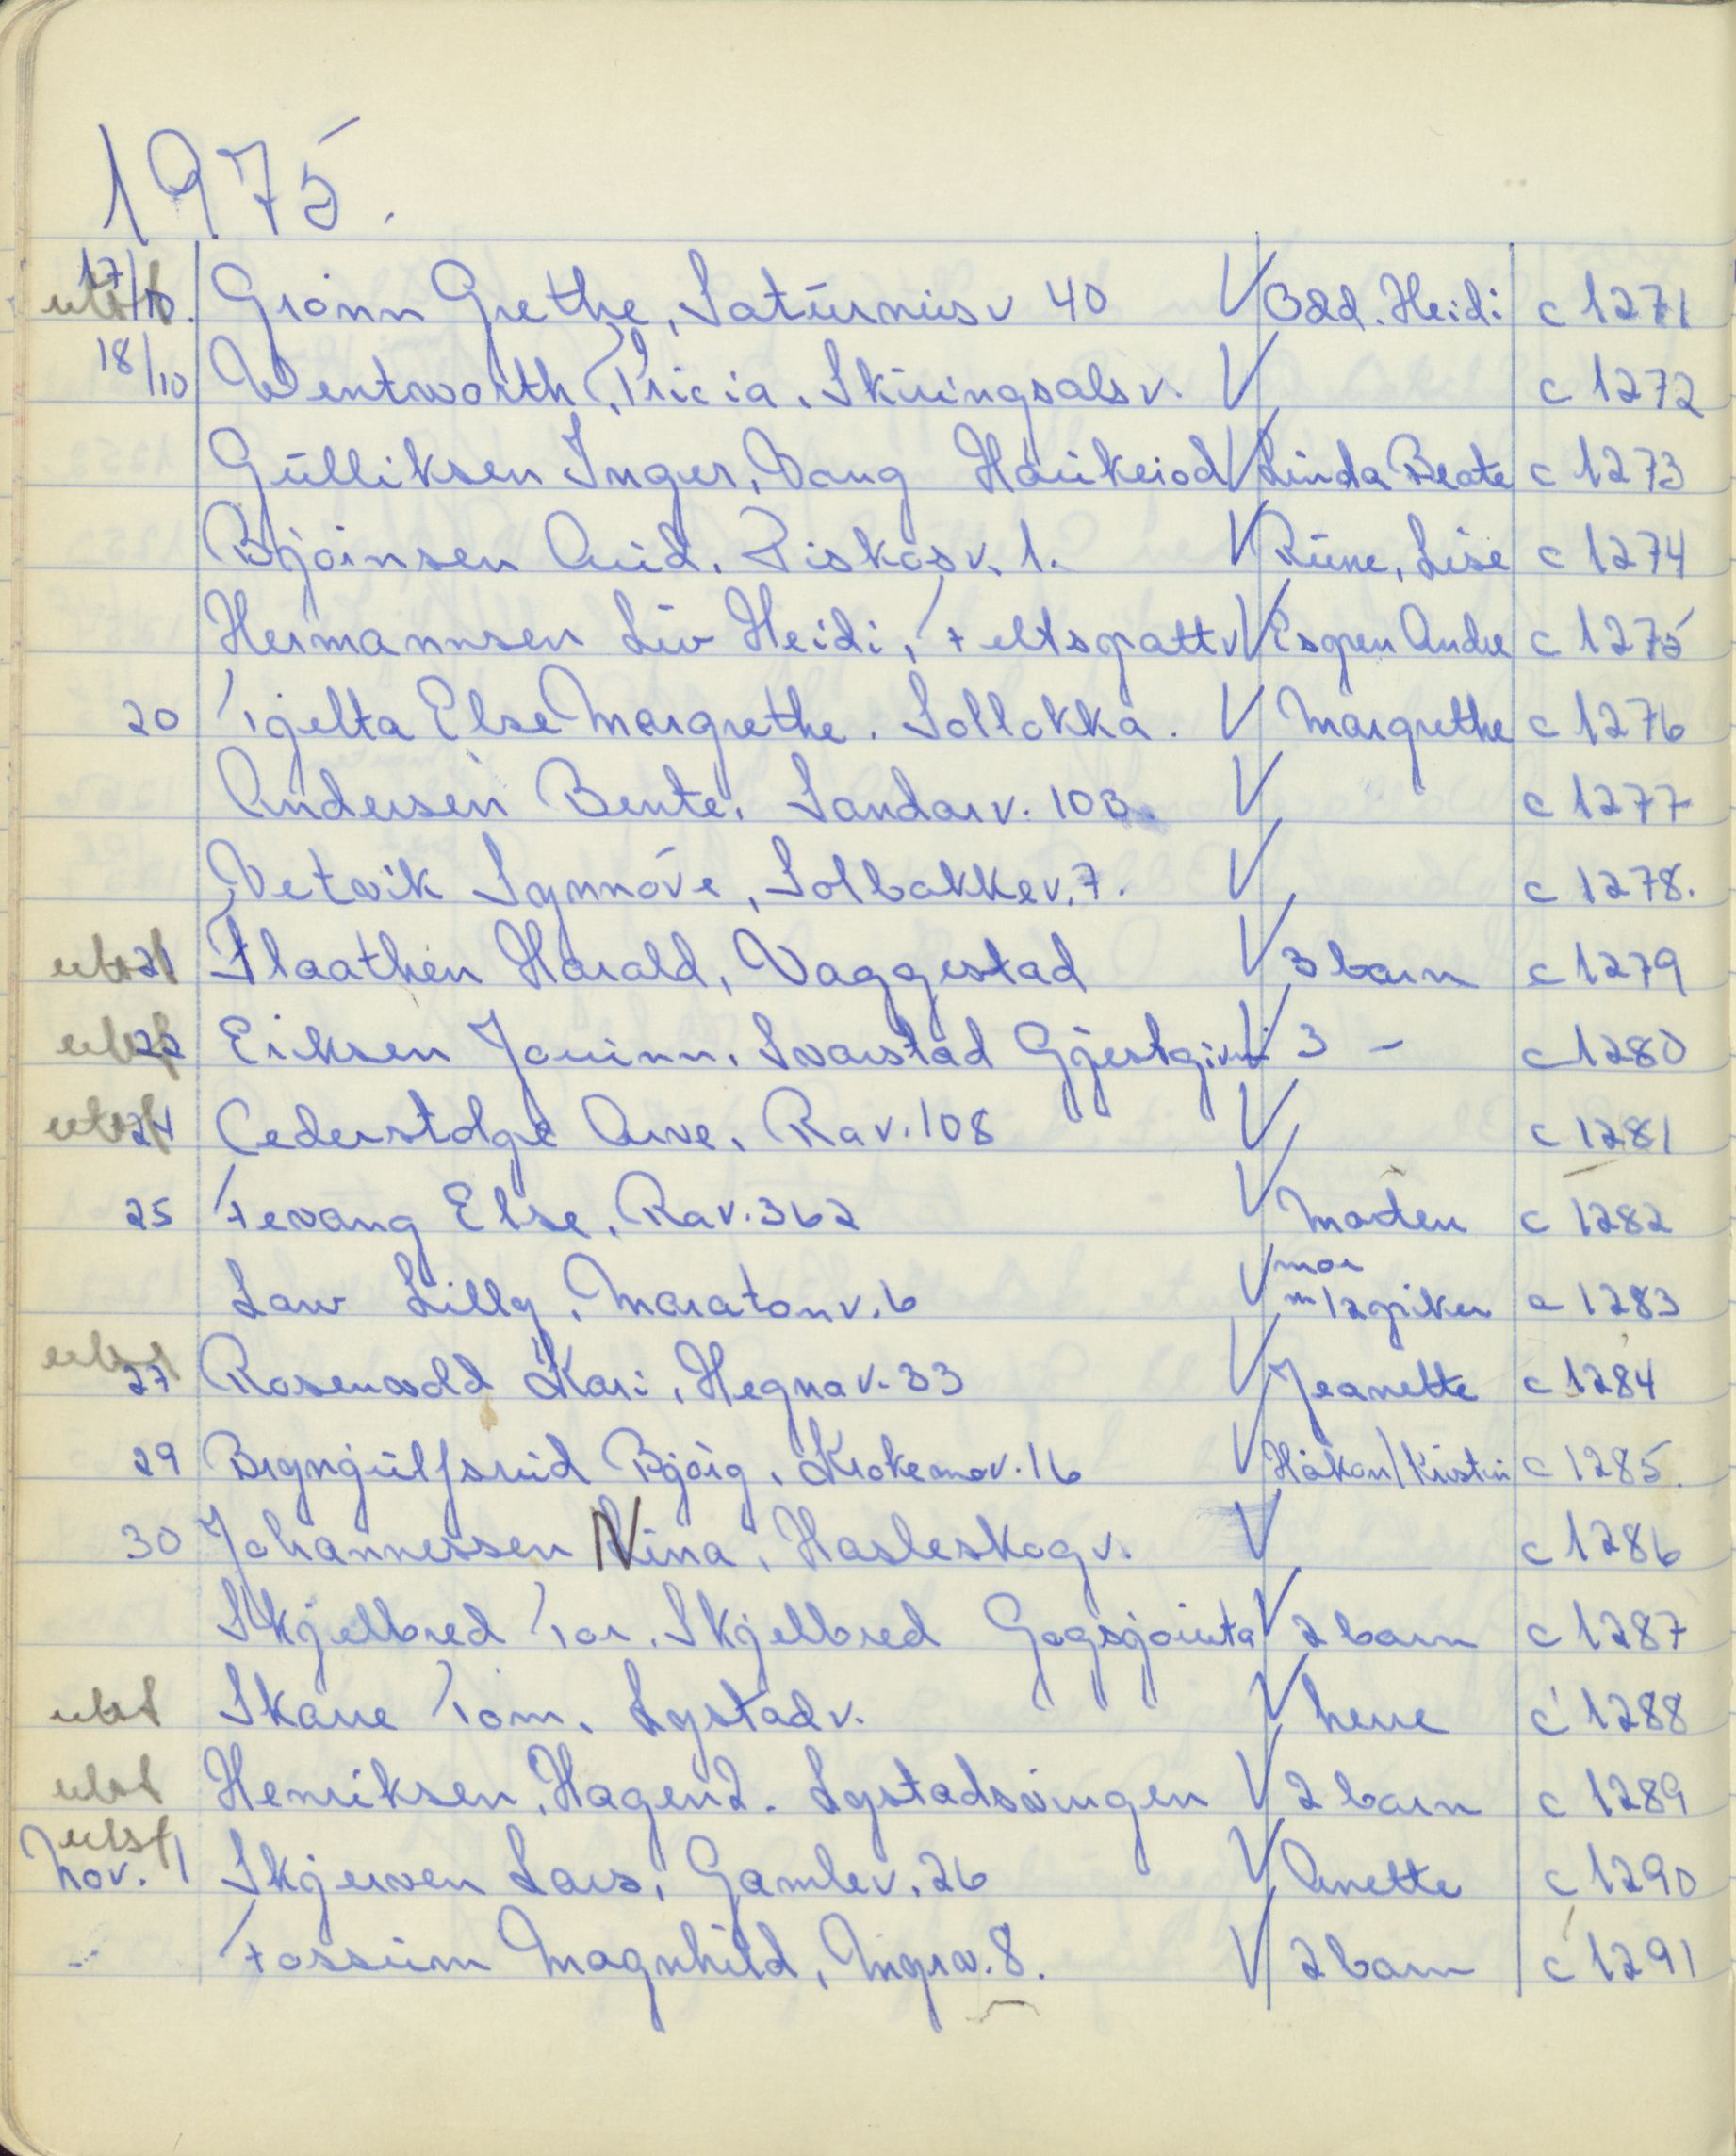 1975.
17/10. Grönn Grethe, Saturnusv 40 V Odd. Heidi c 1271
18/10 Wentworth, Tricia. Skiringsalsv. V c 1272
Gulliksen Inger, Vang Haukerød V Linda Beate c 1273
Bjørnsen Aud. Piskåsv. 1. V Rune, Lise c 1274
Hermannsen Liv Heidi, Feltspattv V Espen Andre c 1275
20 Tjelta Else Margrethe. Solløkka. V Margrethe c 1276
Andersen Bente. Sandarv. 103. V c 1277
Vetvik Synnöve, Solbakkev. 7. V c 1278.
utest 21 Flaathen Harald, Vaggestad V 3 barn c 1279
22 Eriksen Jorunn. Svarstad V 3 - c 1280
24 Cederstolpe Arve. Rav. 108 V c 1281
25 Fevang Else. Rav. 362 V moden c 1282
Larv Lilly. Maratonv. 6 V mor m/2 piker c 1283
27 Rosenvold Kari, Hegnav. 33 V Jeanette c 1284
29 Bryngulfsrud Bjørg. Krokemov. 16 V Håkon/Kristin c 1285.
30 Johannessen Nina, Hasleskogv. V c 1286
Skjelbred Tor. Skjelbred V 2 barn c 1287
Skaue Tom. Lystadv. V herre c 1288
Henriksen, Hagen 2. Lystadsvingen V 2 barn c 1289
nov. 1 Skjerven Lars, Gamlev. 26 V Anette c 1290
- Fossum Magnhild, V 2 barn c 1291